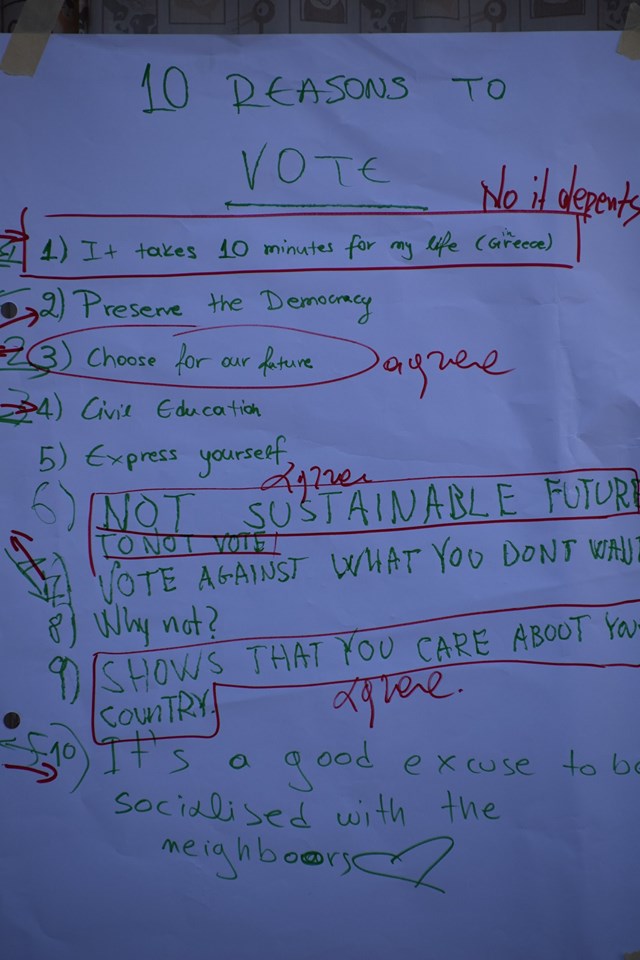 10 REASONS TO
VOTE
No it depents
1) It takes 10 minutes for my life (in Greece)
2) Preserve the Democracy
3) Choose for our future
agree
4) Civic Education
5) Express yourself
agree
6) NOT SUSTAINABLE FUTUR
TO NOT VOTE
7) VOTE AGAINST WHAT YOU DONT WAN
8) Why not?
9) SHOWS THAT YOU CARE ABOUT YOU
COUNTRY.
agree.
10) It's a good excuse to be
socialised with the
neighboors